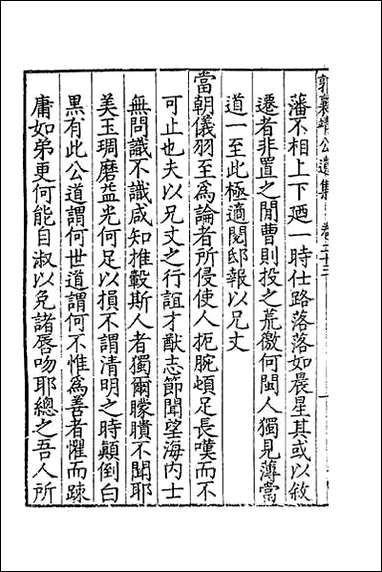 郭襄靖公遺集 卷二十三
藩不相上下廼一時仕路落落如晨星其或以敘
遷者非置之閒曹則投之荒徼何閩人獨見薄當
道一至此極適閱邸報以兄丈
當朝儀羽至為論者所侵使人扼腕頓足長嘆而不
可止也夫以兄丈之行誼才猷志節聞望海內士
無問識不識咸知推轂斯人者獨爾矇瞶不聞耶
美玉琱磨益光何足以損不謂清明之時顛倒白
黑有此公道謂何世道謂何不惟為善者懼而踈
庸如弟更何能自淑以免諸脣吻耶總之吾人所